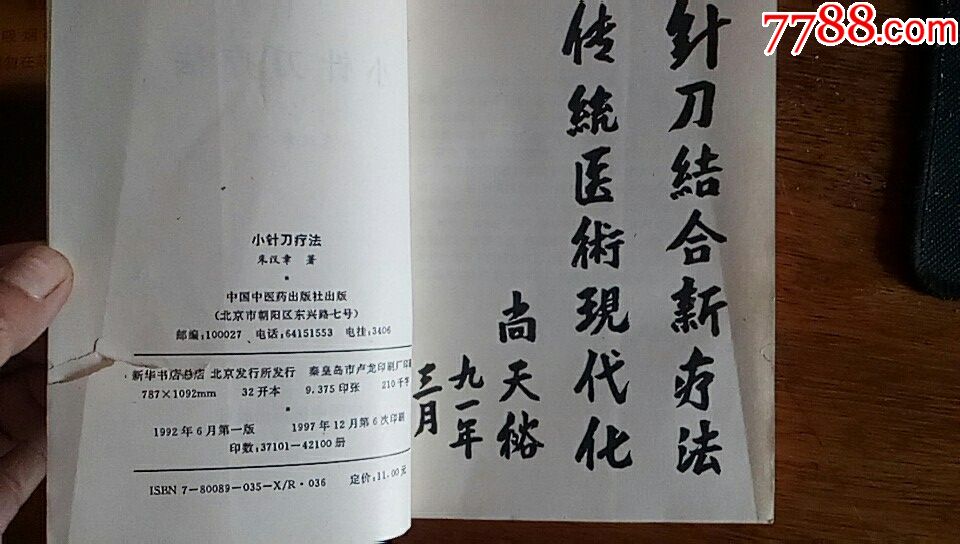 7788.com
小针刀疗法
朱汉章 著
中国中医药出版社出版
(北京市朝阳区东兴路七号)
邮编:100027 电话:64151553 电挂:3406
新华书店总店 北京发行所发行 秦皇岛市卢龙印刷厂印刷
787×1092mm 32开本 9.375印张 210千字
1992年6月第一版 1997年12月第6次印刷
印数:37101-42100册
ISBN 7-80089-035-X/R·036 定价:11.00元
針刀結合新疗法
传統医術現代化
尚天裕
九一年
三月